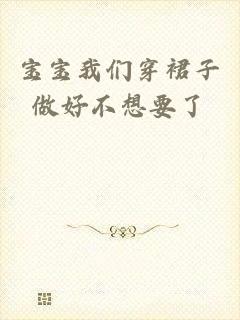 宝宝我们穿裙子
做好不想要了